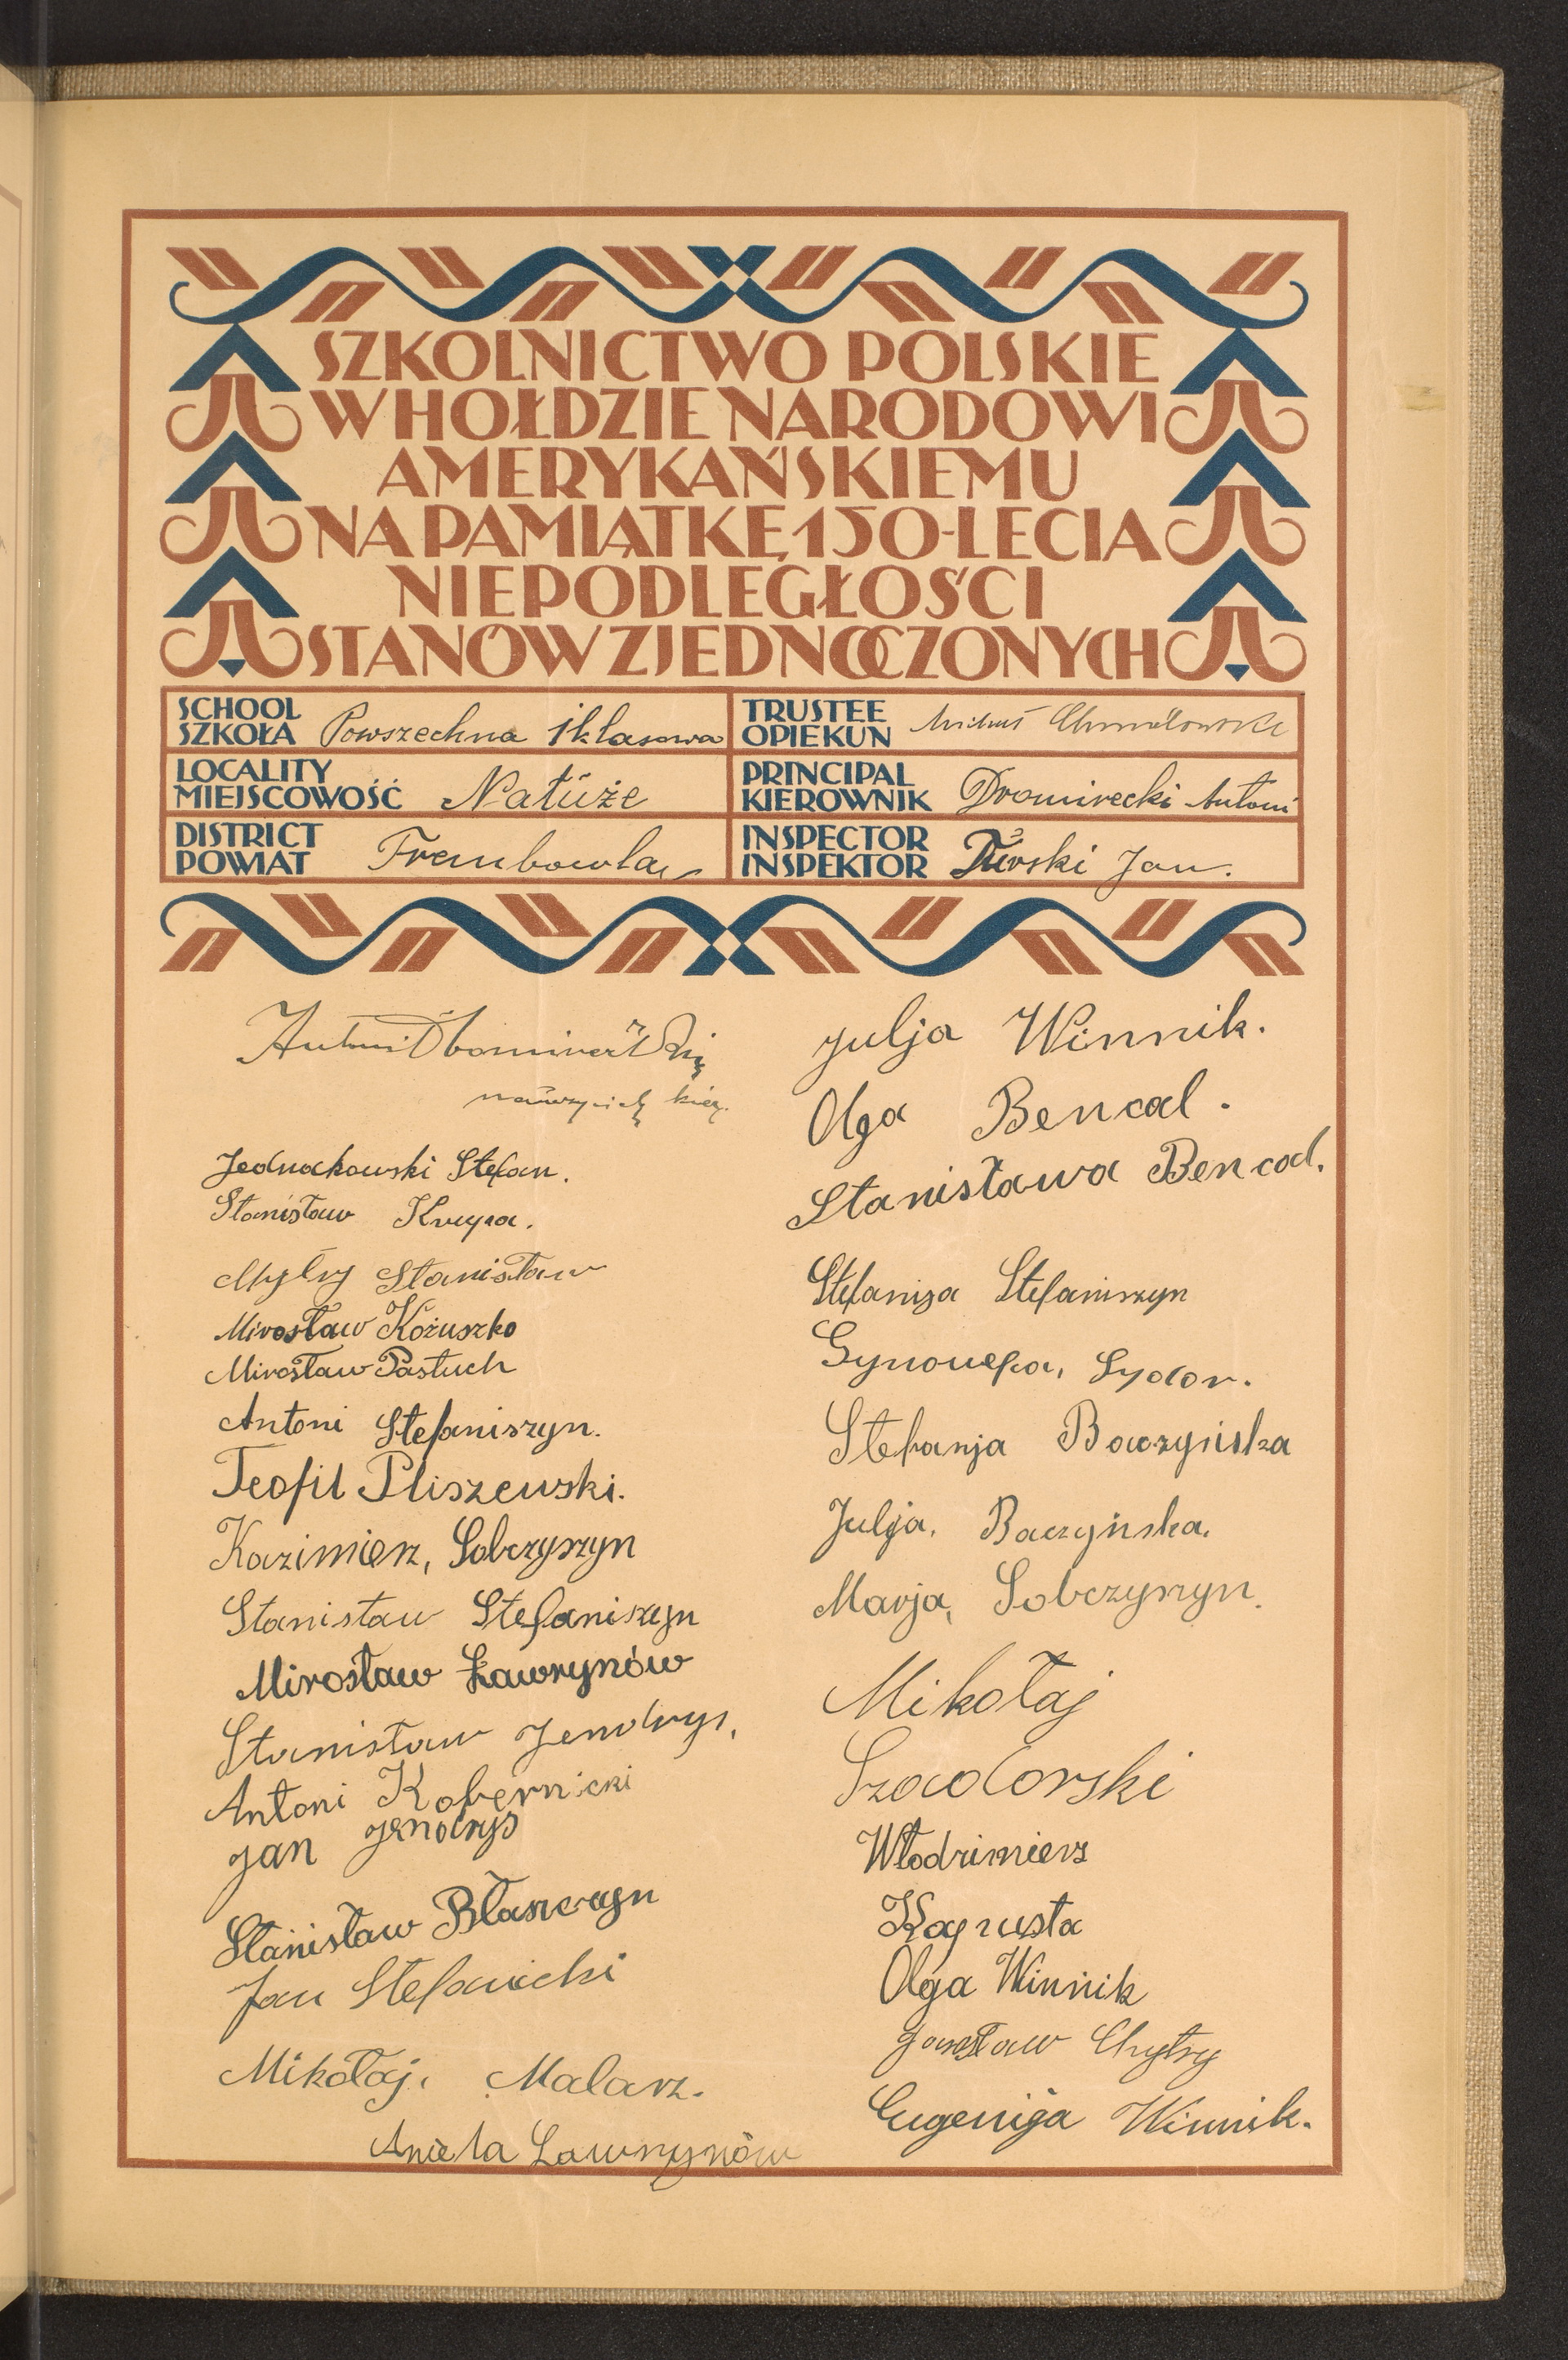 SZKOLNICTWO POLSKIE
W HOŁDZIE NARODOWI
AMERYKAŃSKIEMU
NA PAMIĄTKĘ 150-LECIA
NIEPODLEGŁOŚCI
STANÓW ZJEDNOCZONYCH
SCHOOL
SZKOŁA Powszechna 1klasowa
TRUSTEE
OPIEKUN
LOCALITY
MIEJSCOWOŚĆ Natuże
PRINCIPAL
KIEROWNIK Dromirecki Antoni
DISTRICT
POWIAT Trembowla
INSPECTOR
INSPEKTOR Turski Jan.
Antoni
kier.
Jednakowski Stefan.
Stanisław Krupa.
Chytry Stanisław
Mirosław Kożuszko
Mirosław Pastuch
Antoni Stefaniszyn.
Teofil Pliszewski.
Kazimierz, Sobczyszyn
Stanisław Stefaniszyn
Mirosław Ławrynów
Stanisław Jendrys.
Antoni Kobernicki
Jan Jendrys
Stanisław Błaszczyn
Jan Stefanicki
Mikołaj. Malarz.
Aniela Ławrynów
Julja Winnik.
Olga Bencal.
Stanisława Bencal.
Stefanija Stefaniszyn
Gynowefa, Sydor.
Stefanja Baczyńska
Julja, Baczyńska.
Marja, Sobczyszyn.
Mikołaj
Szadorski
Włodzimierz
Kapusta
Olga Winnik
Jarosław Chytry
Eugenija Winnik.